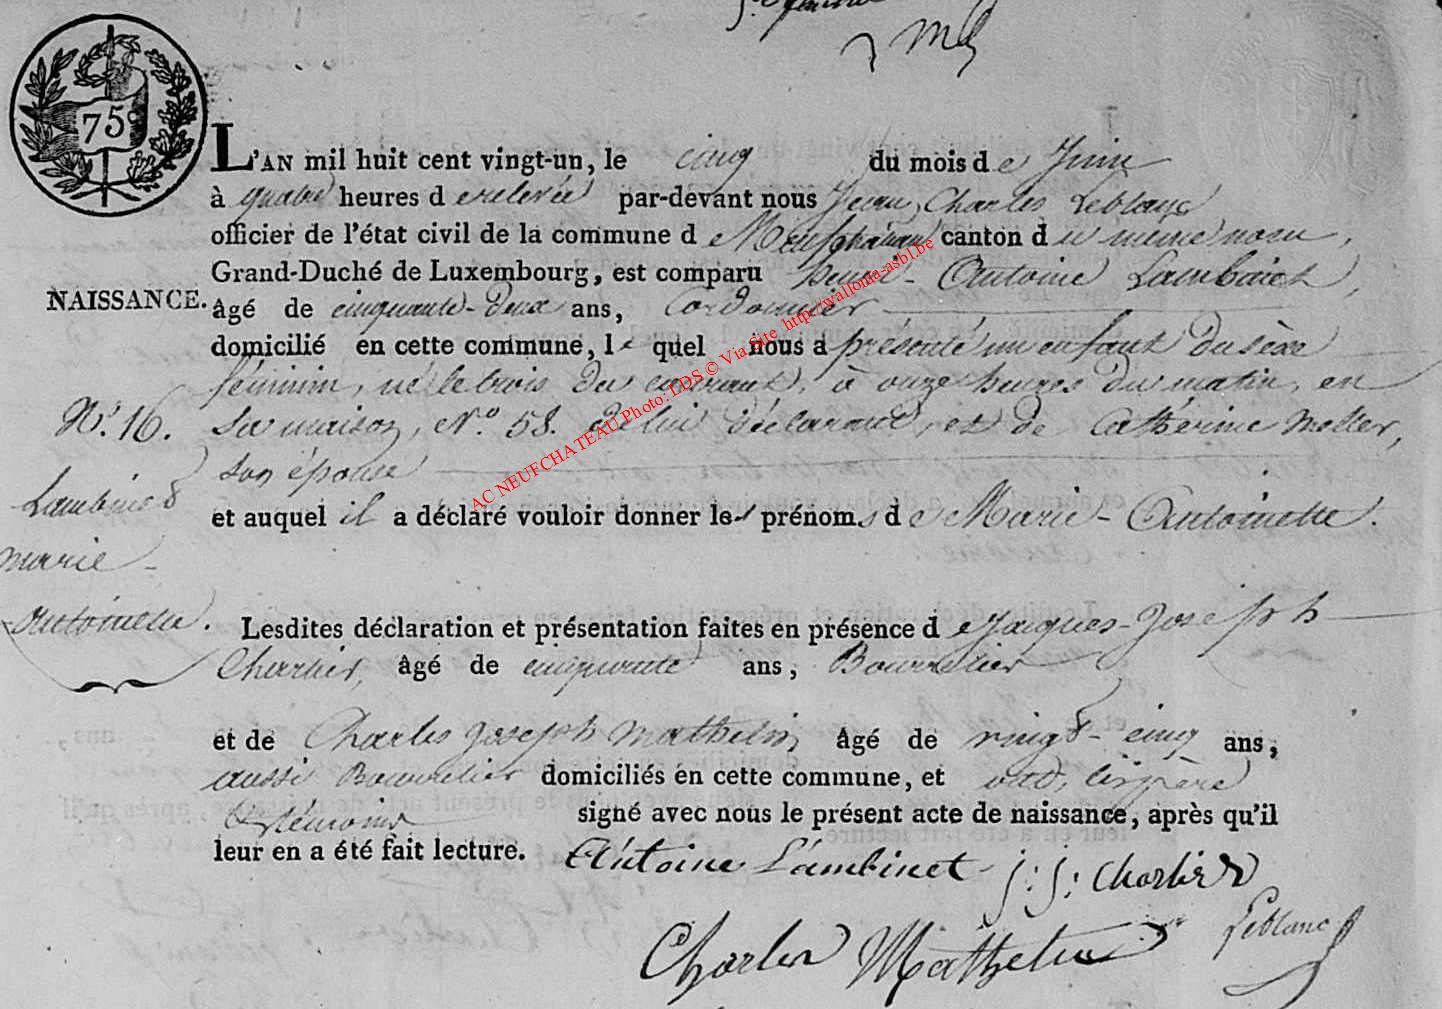 75c
L'AN mil huit cent vingt-un, le cinq du mois de Juin
à quatre heures de relevée par-devant nous Jean Charles Leblanc
officier de l'état civil de la commune de Neufchâteau canton du même nom
Grand-Duché de Luxembourg, est comparu henri-Antoine Lambinet,
NAISSANCE. âgé de cinquante-deux ans, Cordonnier
domicilié en cette commune, lequel nous a présenté un enfant du sèxe
féminin, né le trois du courant, à onze heures du matin, en
N°. 16. sa maison, N.° 58. de lui déclarant, et de Cathérine Moller,
son épouse
Lambinet
et auquel il a déclaré vouloir donner les prénoms de Marie-Antoinette.
marie-
antoinette.
Lesdites déclaration et présentation faites en présence de Jacques-Joseph
Charlier, âgé de cinquante ans, Bourrelier
et de Charles Joseph Mathelin, âgé de vingt-cinq ans,
aussi Bourrelier domiciliés en cette commune, et ont, les père
et témoins signé avec nous le présent acte de naissance, après qu'il
leur en a été fait lecture. Antoine Lambinet J: J: Charlier
Charles Mathelin Leblanc
AC NEUFCHATEAU Photo: LDS © Via Site http://wallonia-asbl.be